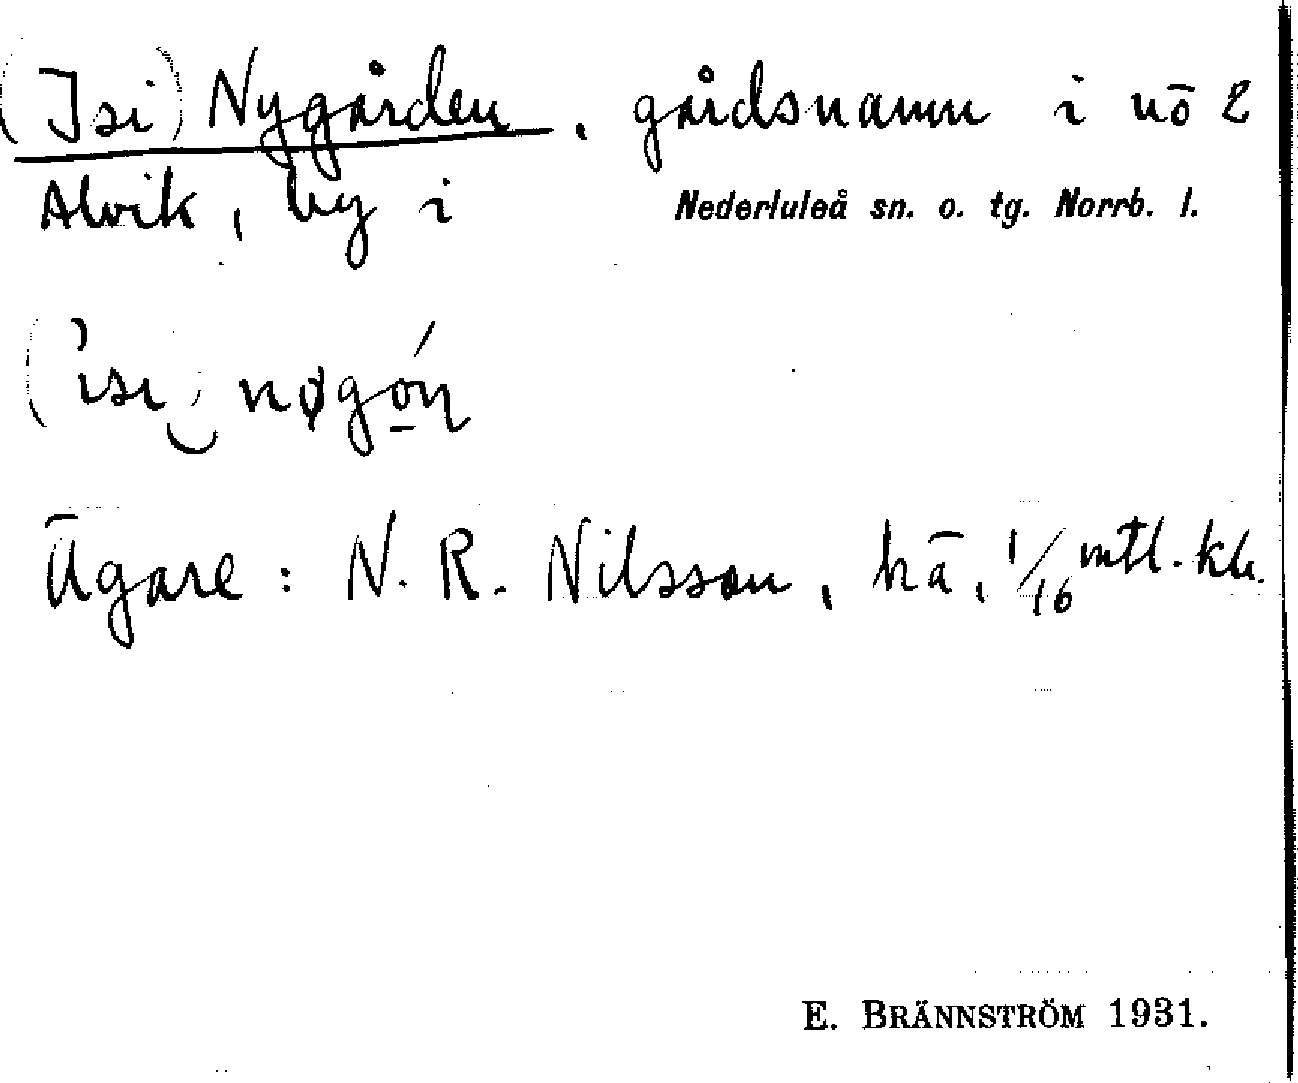 (Isi) Nygården, gårdsnamn i nö 2
Alvik, by i Nederluleå sn. o. tg. Norrb. l.
(ìsi) nøgón
Ägare: N. R. Nilsson, hä, 1/16 mtl. kr.
E. BRÄNNSTRÖM 1931.